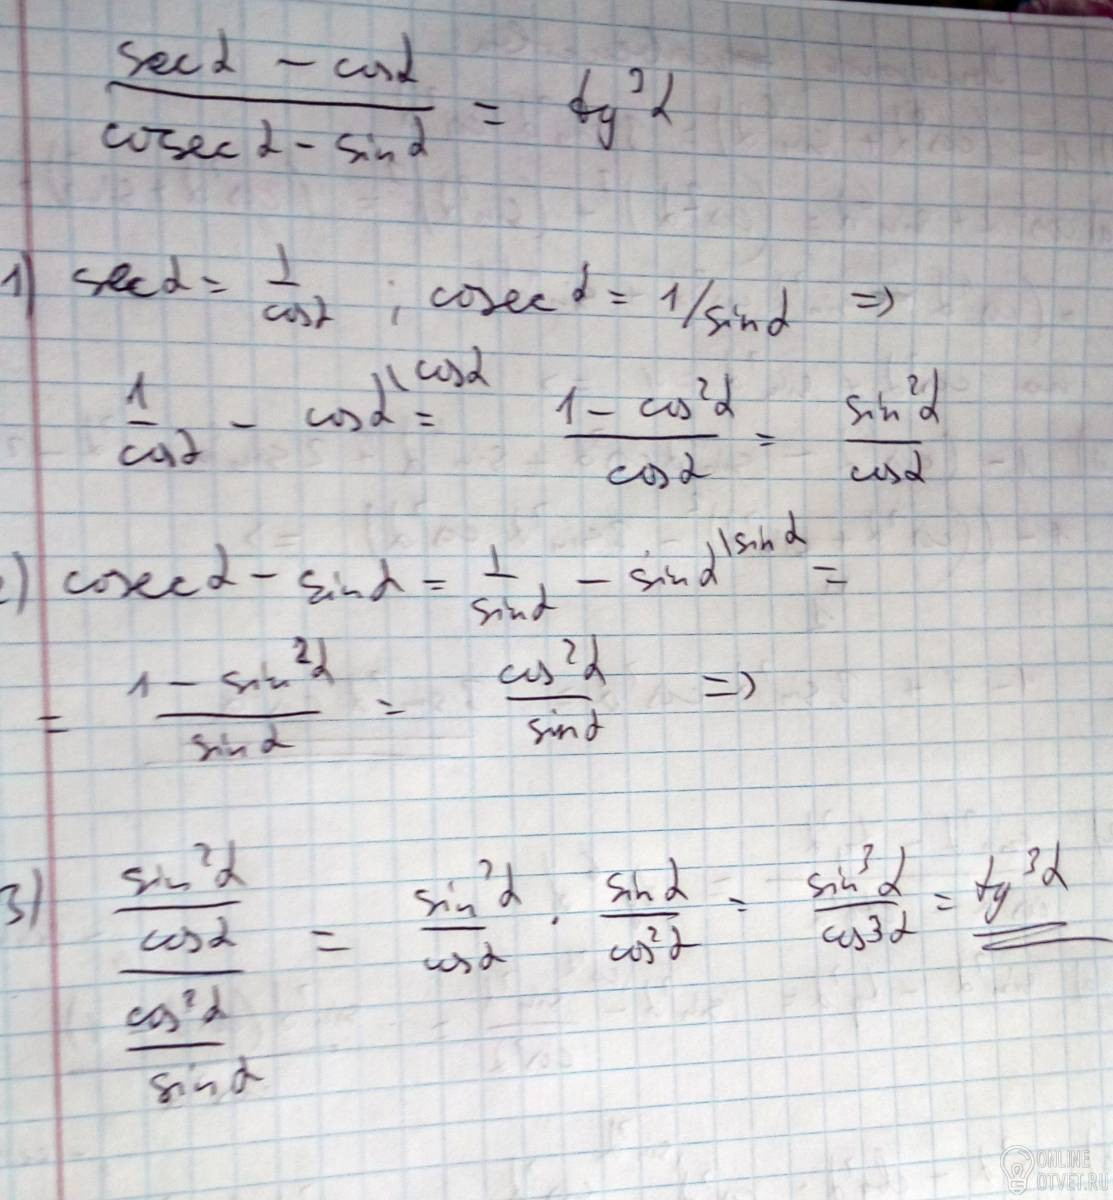 secα - cosα
———— = tg³α
cosecα - sinα
1) secα = 1/cosα ; cosecα = 1/sinα =>
1/cosα - cosα \cosα = (1 - cos²α)/cosα = sin²α/cosα
) cosecα - sinα = 1/sinα - sinα \sinα =
= (1 - sin²α)/sinα = cos²α/sinα =>
3) (sin²α/cosα)/(cos²α/sinα) = sin²α/cosα · sinα/cos²α = sin³α/cos3α = tg³α
ONLINE
OTVET.RU